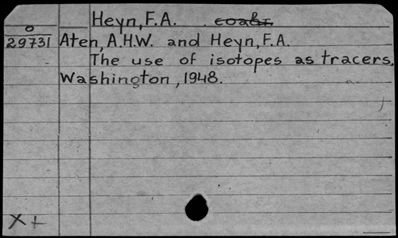 Heyn, F.A. coaut.
O
29731 Aten, A.H.W. and Heyn, F.A.
The use of isotopes as tracers.
Washington, 1948.
X +